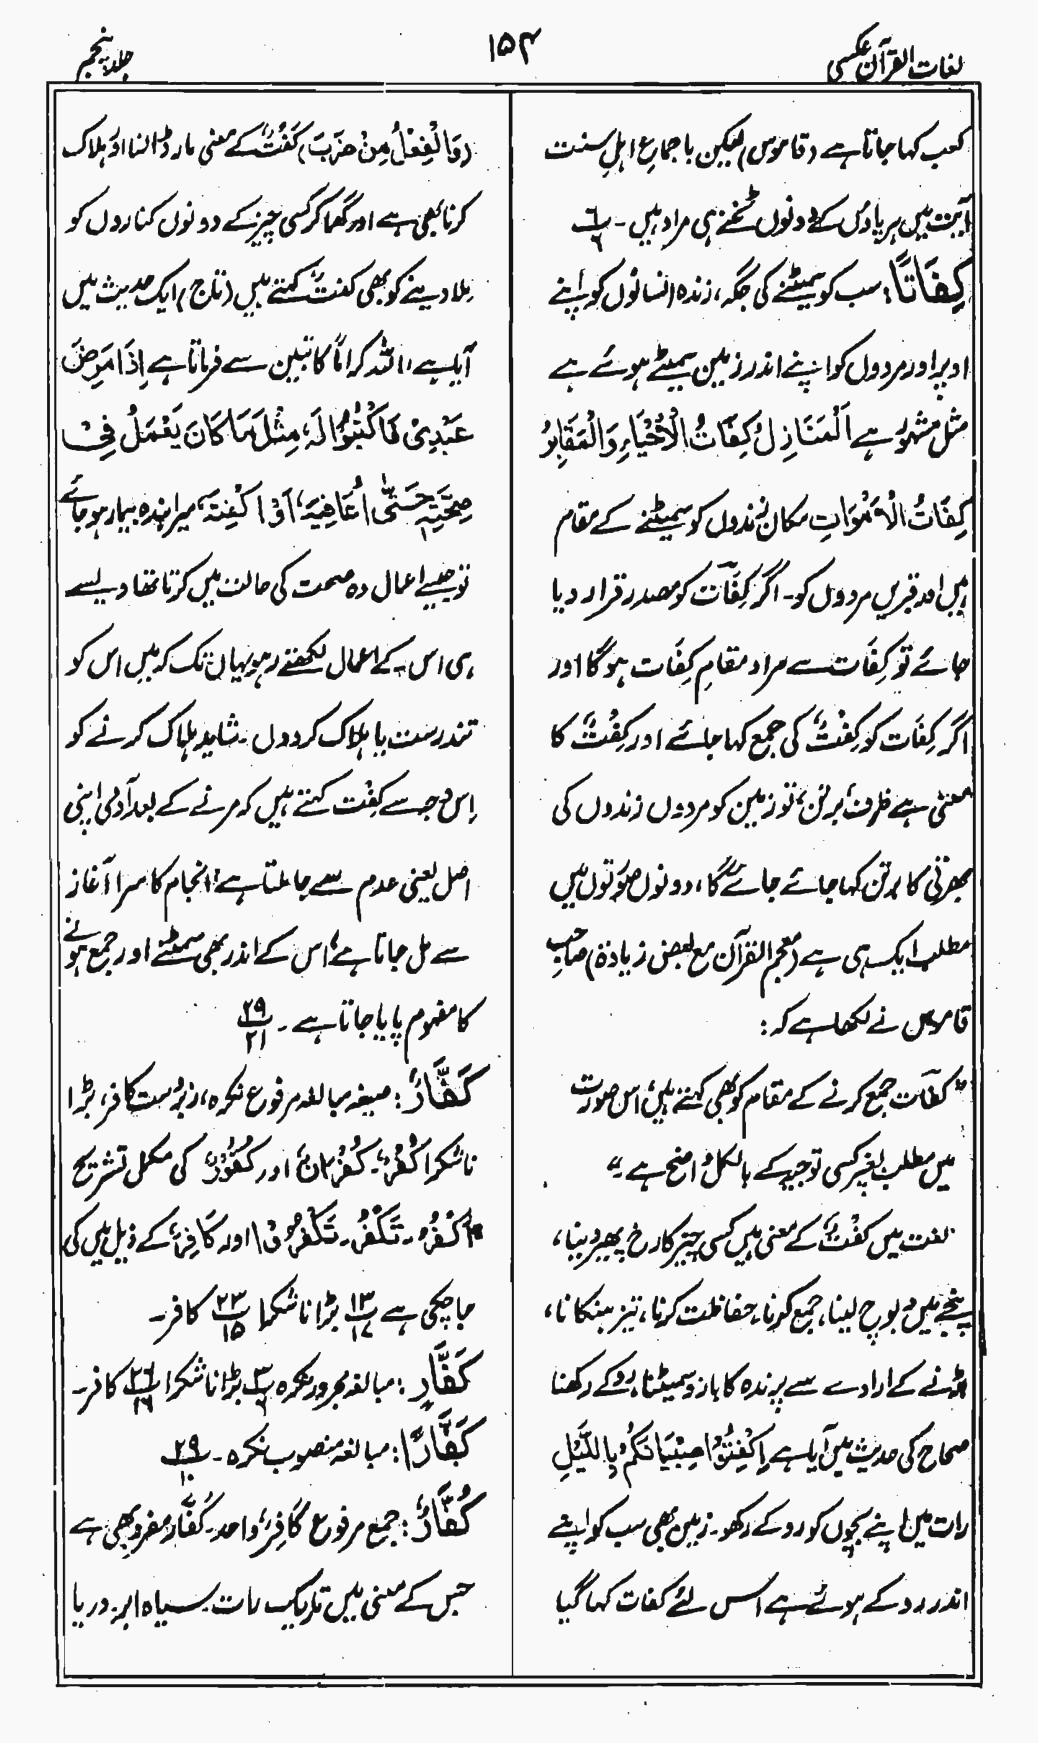 لغات القرآن عکسی
۱۵۴
جلد پنجم
کعب کہا جاتا ہے (قاموس) لیکن باجماعِ اہلِ سنت
آیت میں ہر پاؤں کے دونوں ٹخنے ہی مراد ہیں۔ ۶/۶
کِفَاتًا: سب کو سمیٹنے کی جگہ، زندہ انسانوں کو اپنے
اوپر اور مردوں کو اپنے اندر زمین سمیٹے ہوئے ہے
مثل مشہور ہے اَلْمَنَازِلُ کِفَاتُ الْاَحْیَاءِ وَالْمَقَابِرُ
کِفَاتُ الْاَمْوَاتِ مکان زندوں کو سمیٹنے کے مقام
ہیں اور قبریں مردوں کو۔ اگر کِفَات کو مصدر قرار دیا
جائے تو کِفَات سے مراد مقامِ کِفَات ہوگا اور
اگر کِفَات کو کِفْتٌ کی جمع کہا جائے اور کِفْتٌ کا
معنی ہے ظرف، برتن، تو زمین کو مردوں زندوں کی
بھرتی کا برتن کہا جائے جائے گا، دونوں صورتوں میں
مطلب ایک ہی ہے (معجم القرآن مع بعض زیادۃ) صاحب
قاموس نے لکھا ہے کہ:
"کفات جمع کرنے کے مقام کو بھی کہتے ہیں، اس صورت
میں مطلب بغیر کسی توجیہ کے بالکل واضح ہے"
لغت میں کَفْتٌ کے معنی ہیں کسی چیز کا رخ پھیر دینا،
پنجے میں دبوچ لینا، جمع کرنا، حفاظت کرنا، نیز ہنکانا،
اڑنے کے ارادے سے پرندہ کا بازو سمیٹنا، روکے رکھنا
صحاح کی حدیث میں آیا ہے اِکْفِتُوْا صِبْیَانَکُمْ بِاللَّیْلِ
رات میں اپنے بچوں کو روکے رکھو۔ زمین بھی سب کو اپنے
اندر روکے ہوئے ہے اس لئے کفات کہا گیا
(وَالْفِعْلُ مِنْ ضَرَبَ) کَفْتٌ کے معنی مار ڈالنا اور ہلاک
کرنا بھی ہے اور گھما کر کسی چیز کے دونوں کناروں کو
ملا دینے کو بھی کفتٌ کہتے ہیں (تاج) ایک حدیث میں
آیا ہے، اللہ کراماً کاتبین سے فرماتا ہے اِذَا مَرِضَ
عَبْدِیْ فَاکْتُبُوْا لَہٗ مِثْلَ مَا کَانَ یَعْمَلُ فِیْ
صِحَّتِہٖ حَتّٰی اُعَافِیَہٗ اَوْ اَکْفِتَہٗ، میرا بندہ بیمار ہو جائے
تو جیسے اعمال وہ صحت کی حالت میں کرتا تھا ویسے
ہی اس کے اعمال لکھتے رہو یہاں تک کہ میں اس کو
تندرست یا ہلاک کر دوں۔ شاید ہلاک کرنے کو
اس وجہ سے کفْت کہتے ہیں کہ مرنے کے بعد آدمی اپنی
اصل یعنی عدم سے جا ملتا ہے، انجام کا سرا آغاز
سے مل جاتا ہے، اس کے اندر بھی سمٹنے اور جمع ہونے
کا مفہوم پایا جاتا ہے۔ ۲۹/۲۱
کَفَّارٌ: صیغہ مبالغہ مرفوع نکرہ، زبردست کافر، بڑا
ناشکرا کُفْرٌ، کُفْرَانٌ اور کُفُوْرٌ کی مکمل تشریح
اَکْفُرُ۔ تَکْفُرُ۔ تَکْفُرُوْنَ اور کَافِرٌ کے ذیل میں کی
جا چکی ہے ۱۳/۱۷ بڑا ناشکرا ۲۳/۱۵ کافر۔
کَفَّارٍ: مبالغہ مجرور نکرہ ۳/۶ بڑا ناشکرا ۲۶/۱۶ کافر۔
کَفَّارًا: مبالغہ منصوب نکرہ۔ ۲۹/۱۰
کُفَّارٌ: جمع مرفوع کَافِرٌ واحد۔ کُفَّار مفرد بھی ہے
جس کے معنی ہیں تاریک رات سیاہ ابر، دریا